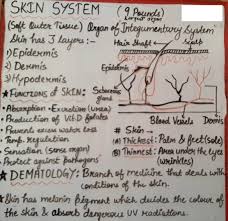 SKIN SYSTEM (9 Pounds)
Largest organ
(Soft Outer Tissue) Organ of Integumentary System
Skin has 3 layers:-
1) Epidermis
2) Dermis
3) Hypodermis
Hair Shaft
Scalp
Epidermis
Sebaceous gland
Blood Vessels
Dermis
* FUNCTIONS of SKIN:
• Absorption - Excretion (urea)
• Production of Vit-D folates
• Prevents excess water loss
• Temp. Regulation
• Sensation (sense organ)
• Protect against pathogens
# Skin
(a) Thickest: Palm & feet (sole)
(b) Thinnest: Area under the eyes
(wrinkles)
★ DEMATOLOGY: Branch of medicine that deals with
conditions of the skin.
Skin has melanin pigment which decides the colour of
the skin & absorb dangerous UV radiations.